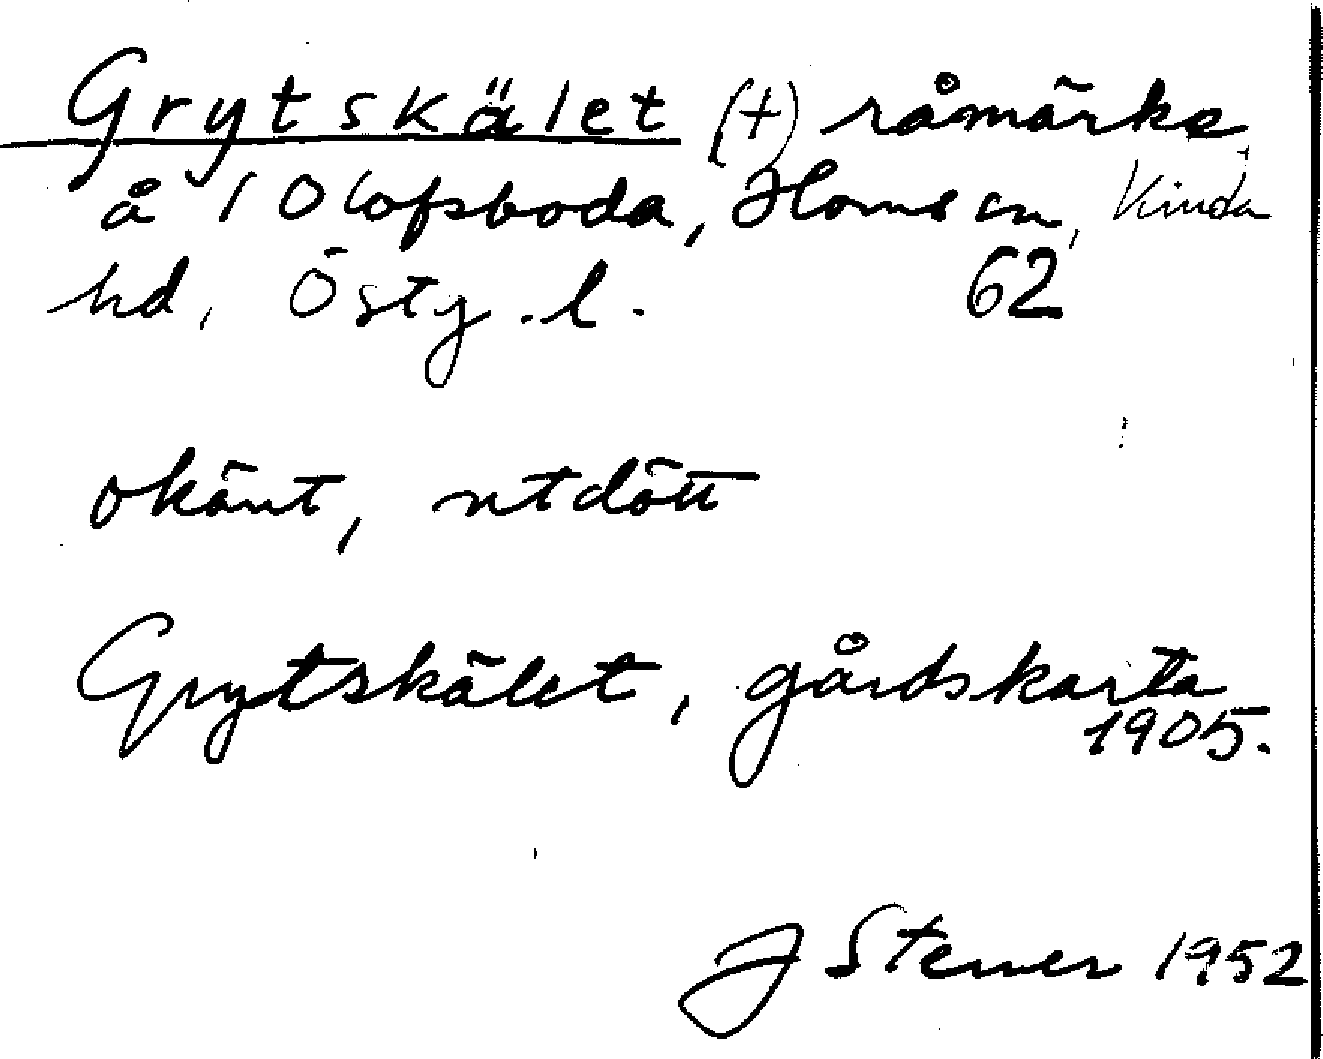 Grytskälet (+) råmärke
å 1 Olofsboda, Horns sn, Kinda
hd, Östg.l. 62
okänt, utdött
Grytskälet, gårdskarta
1905.
J Stener 1952